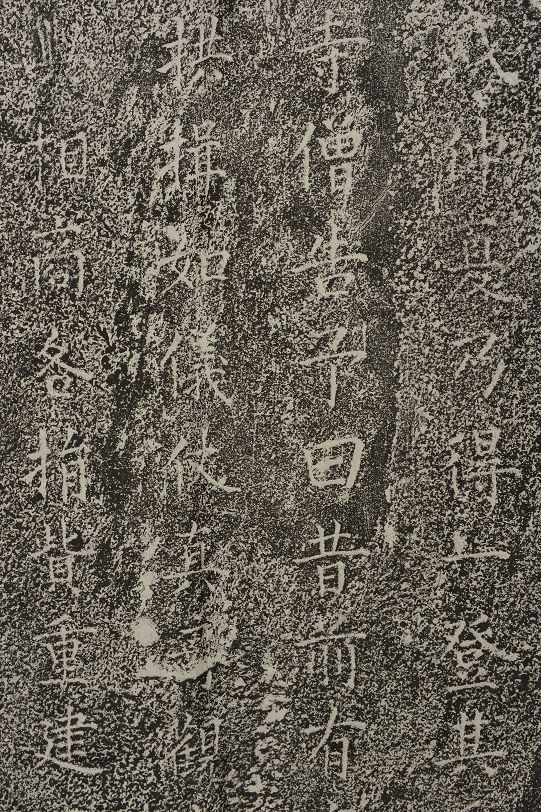 仲是乃得一登其
寺僧告予曰昔前有
拱揖如儀仗真可觀
相高各捐貲重建